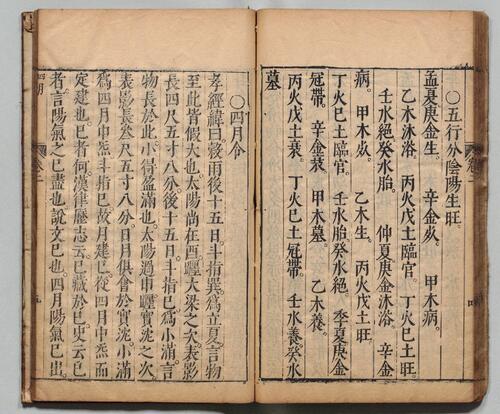 ○五行分陰陽生旺
孟夏庚金生。辛金𣦸。甲木病。
乙木沐浴。丙火戊土臨官。丁火巳土旺
壬水絕癸水胎。仲夏庚金沐浴。辛金
病。甲木𣦸。乙木生。丙火戊土旺
丁火巳土臨官。壬水胎癸水絕。季夏庚金
冠帶。辛金衰。甲木墓。乙木養。
丙火戊土衰。丁火巳土冠帶。壬水養癸水
墓
○四月令
孝經緯曰穀雨後十五日。斗指巽爲立夏。言物
至此皆假大也。太陽尚在酉躔大梁之次。表影
長四尺五寸八分。後十五日。斗指巳。爲小滿。言
物長於此。小得盈滿也。太陽過申躔實沈之次。
表影長叁尺五寸八分。日月俱會於實沈。小滿
爲四月中炁。斗指巳故月建巳。從四月中炁而
定建也。巳者何。漢律歷志云。巳藏於巳。史云。巳
者。言陽氣之巳盡也。說文巳也。四月陽氣巳出。